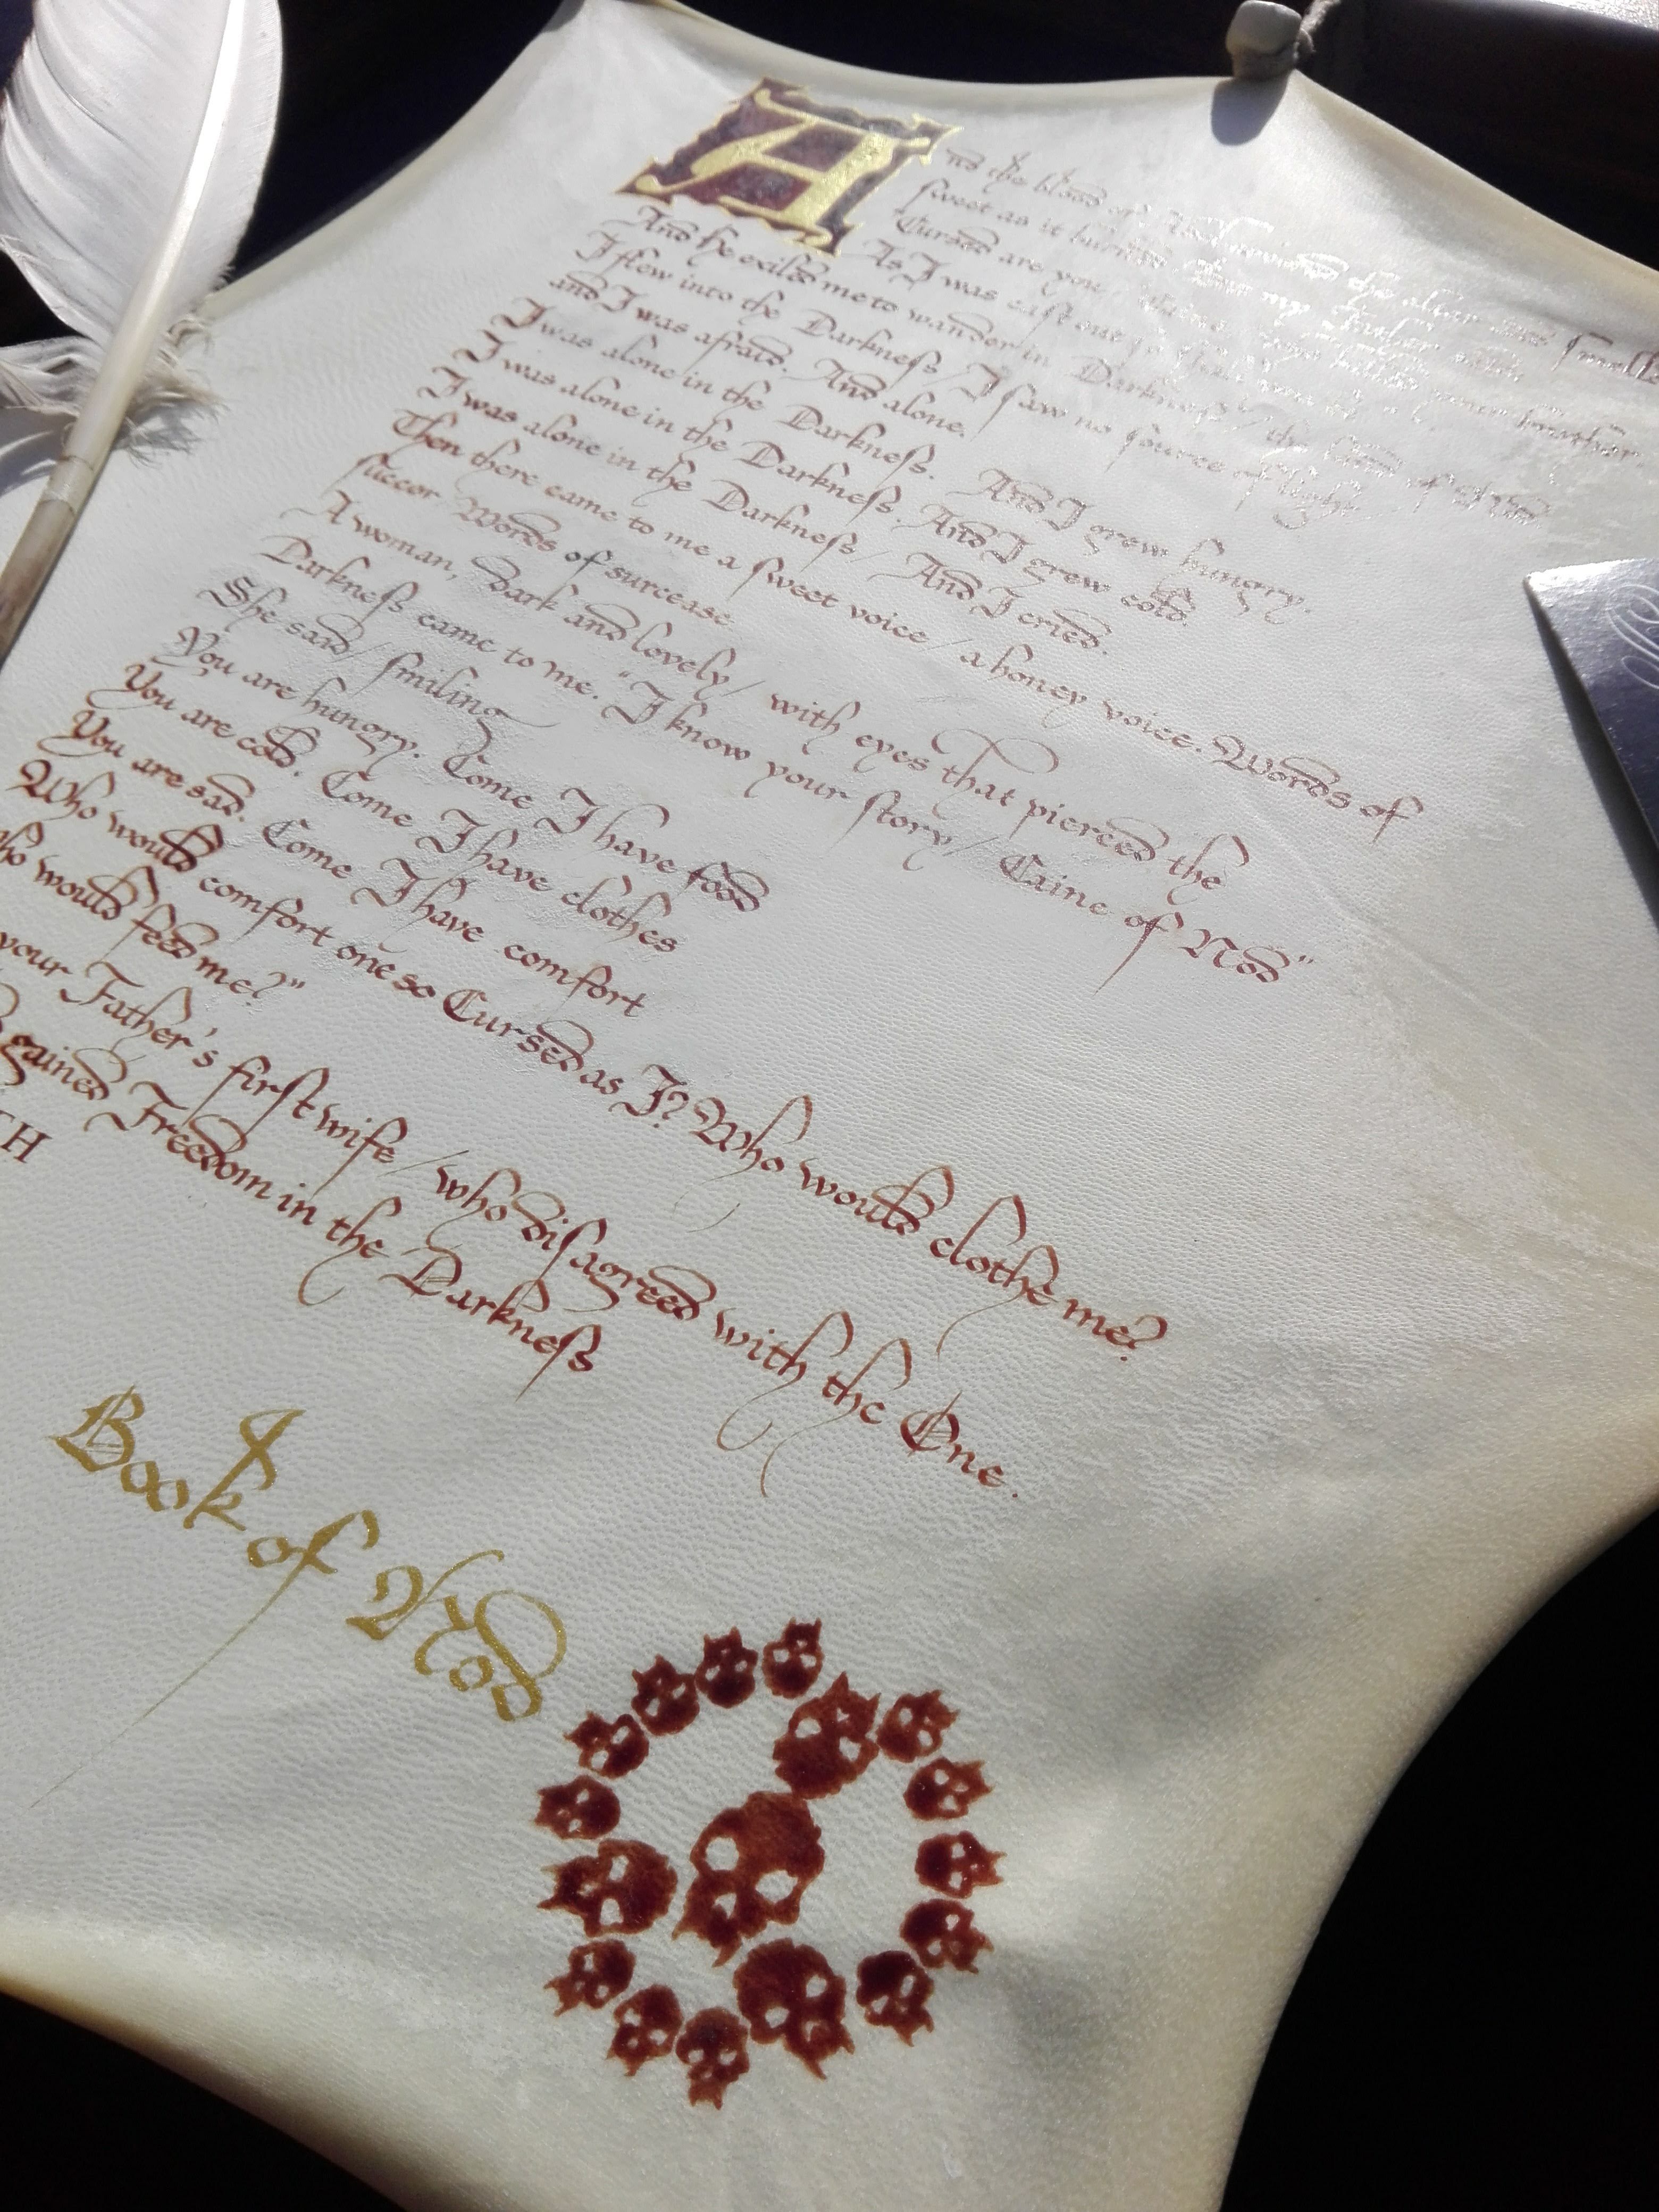 And the blood of covered the altar and smelle
sweet as it burned. But my Father said
"Cursed are you, who killed your brother.
As I was cast out so
And he exiled me to wander in Darkness / the Land of Nod
I flew into the Darkness / I saw no source of light
and I was afraid. And alone.
I was alone in the Darkness. And I grew hungry.
I was alone in the Darkness. And I grew cold.
I was alone in the Darkness / And I cried.
Then there came to me a sweet voice / a honey voice. Words of
succor. Words of surcease.
A woman, Dark and lovely / with eyes that pierced the
Darkness came to me. "I know your story / Caine of Nod"
She said / smiling
You are hungry. Come I have food
You are cold. Come I have clothes
You are sad. Come I have comfort
Who would comfort one so Cursed as I? Who would clothe me?
ho would feed me?"
your Father's first wife / who disagreed with the One.
gained Freedom in the Darkness
TH
Book of Nod